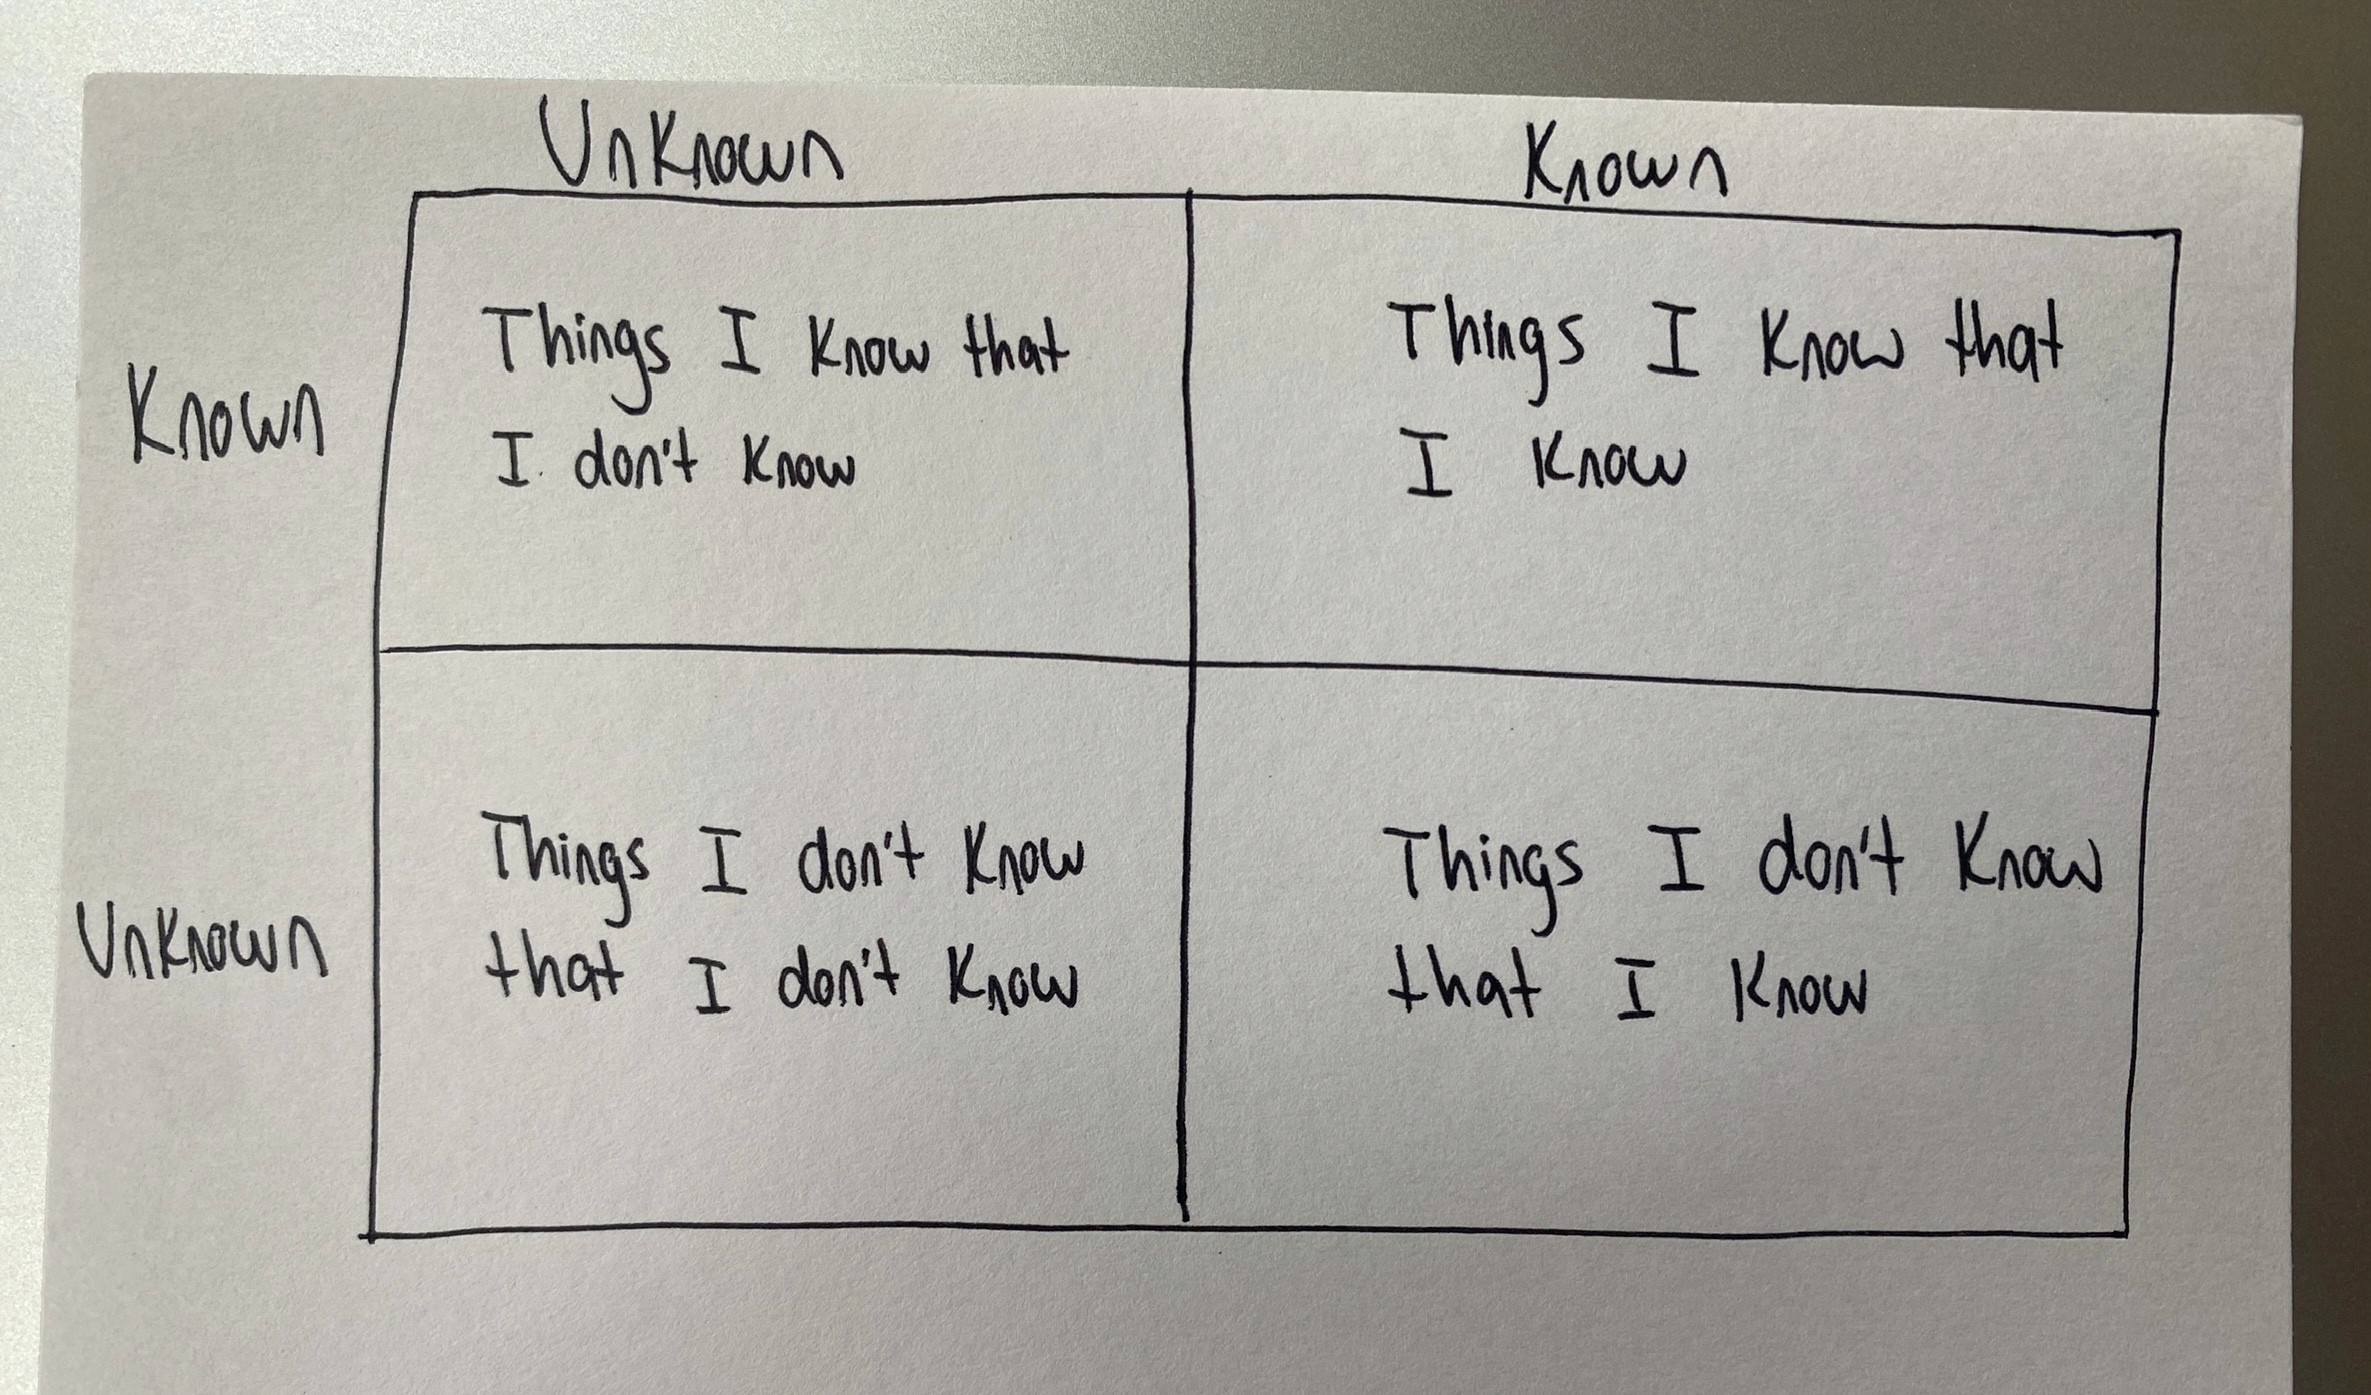 Unknown Known
Known
Things I know that
I don't know
Things I know that
I know
Unknown
Things I don't know
that I don't know
Things I don't know
that I know